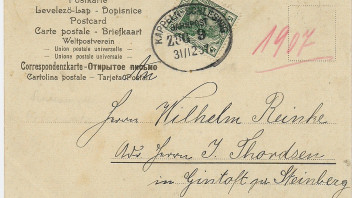 Postkarte
Levelező-Lap - Dopisnice
Postcard
Carte postale - Briefkaart
Weltpostverein -
- Union postale universelle -
- Unione postale universale -
Correspondenzkarte - Открытое письмо
Cartolina postale - Tarjeta Postale
ZUG 9
31/12
1907
An
Herrn Wilhelm Reinke
Adr Herrn J. Thordsen
in Gintoft pr Steinberg